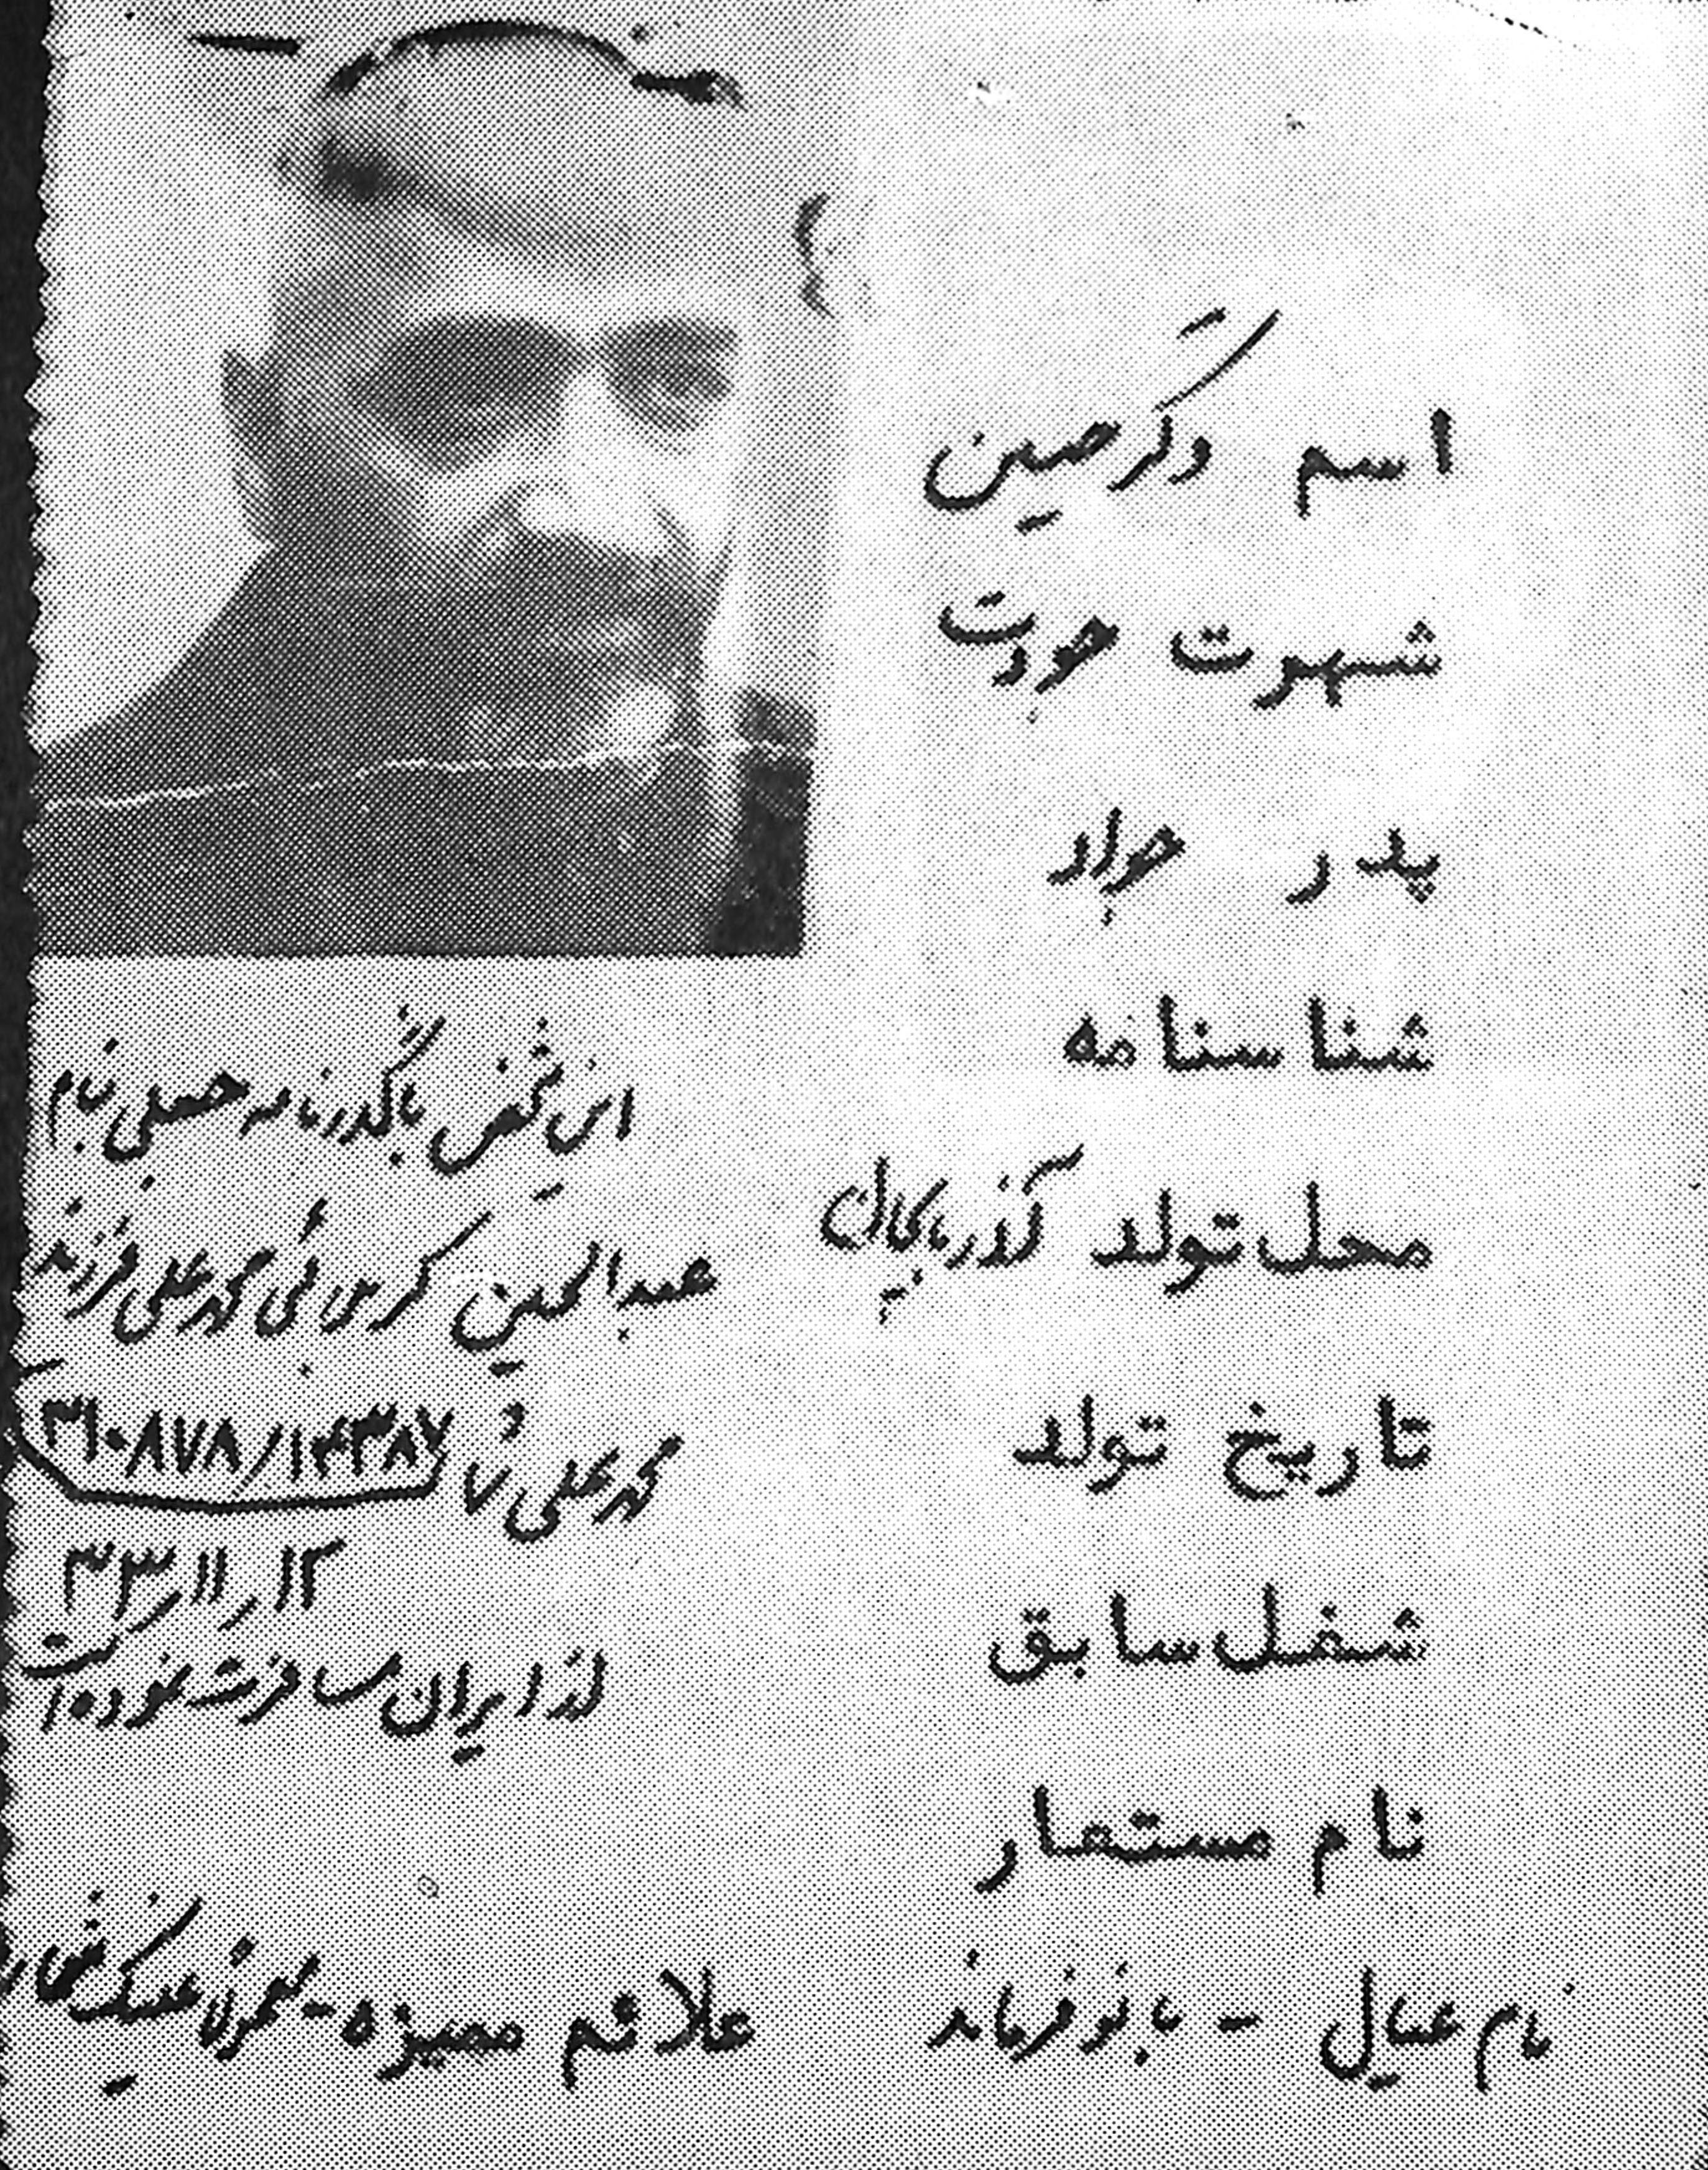 اسم دکتر حسین
شهرت جودت
پدر جواد
شناسنامه
محل تولد آذربایجان
تاریخ تولد
شغل سابق
نام مستعار
نام عیال - بانو فرماند
این شخص با گذرنامه جعلی بنام
عبدالحسین کربلائی محمد علی فرزند
محمد علی
۱۲ر۱۱ر۳۳
از ایران مسافرت نموده است
علائم ممیزه - عینک